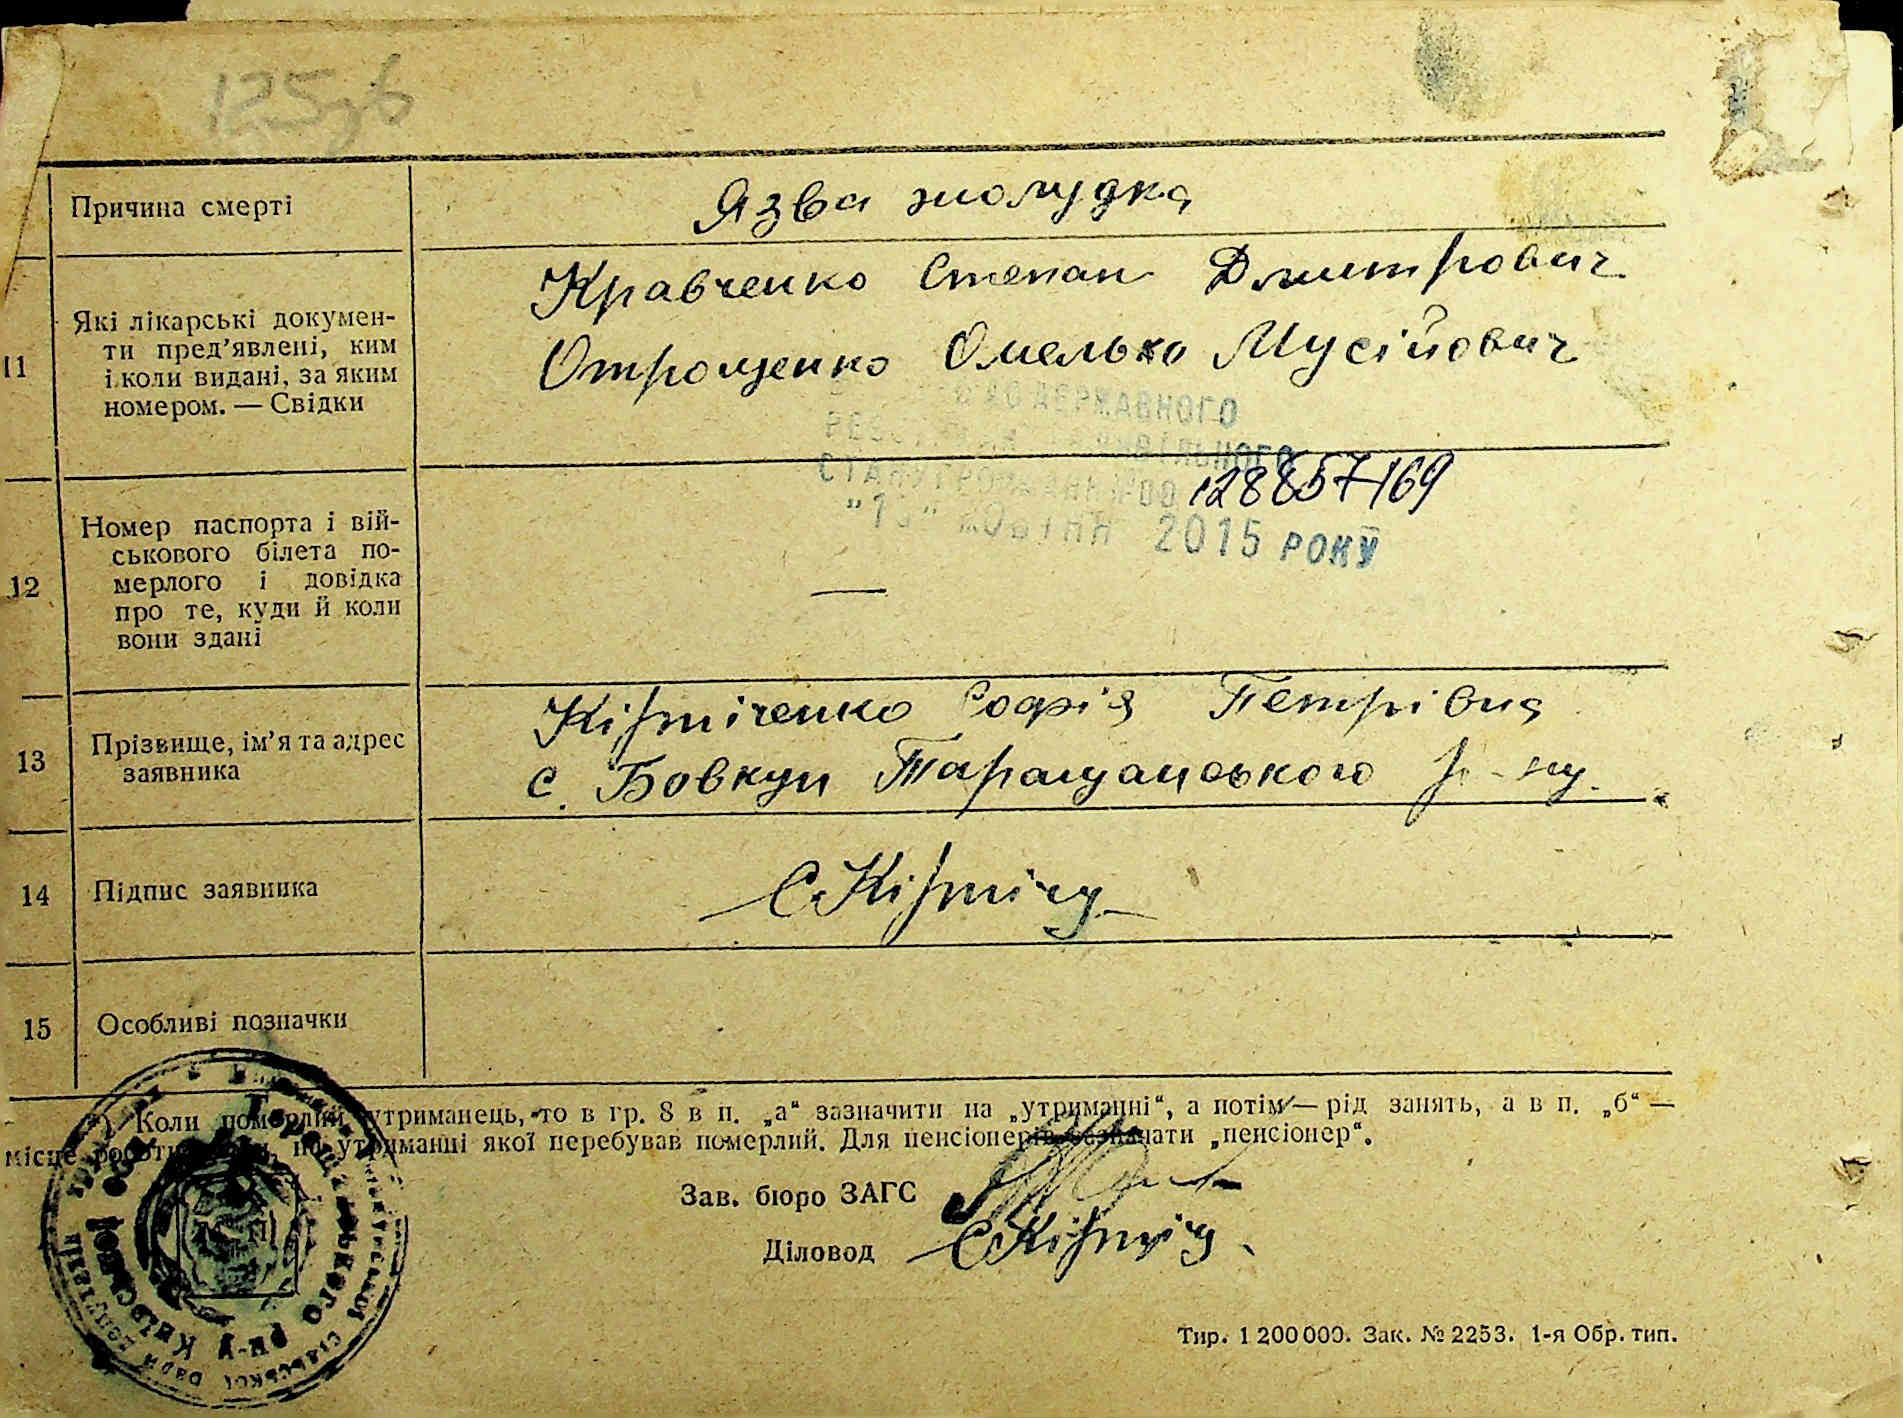 125зв
Причина смерті
Язва жолудка
11
Які лікарські докумен-
ти пред’явлені, ким
і коли видані, за яким
номером. — Свідки
Кравченко Степан Дмитрович
Отрощенко Омелько Мусійович
ДЕРЖАВНОГО
2015 РОКУ
12
Номер паспорта і вій-
ськового білета по-
мерлого і довідка
про те, куди й коли
вони здані
—
13
Прізвище, ім’я та адрес
заявника
Кірпіченко Софія Петрівна
с. Бовкун Таращанського р-ну.
14
Підпис заявника
СКірпіч
15
Особливі позначки
Коли померлий утриманець, то в гр. 8 в п. „а“ зазначити на „утриманні“, а потім — рід занять, а в п. „б“ —
місце роботи на утриманні якої перебував померлий. Для пенсіонерів зазначати „пенсіонер“.
Зав. бюро ЗАГС
Діловод СКірпіч
Таращанського р-ну Київської
Тир. 1 200 000. Зак. № 2253. 1-я Обр. тип.